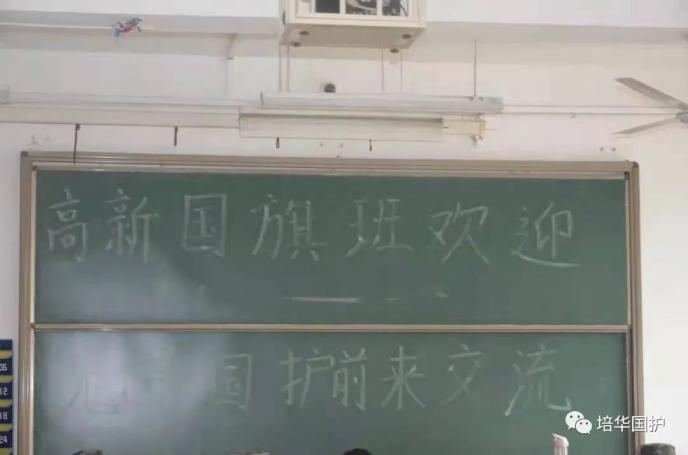 高新国旗班欢迎
国护前来交流
培华国护